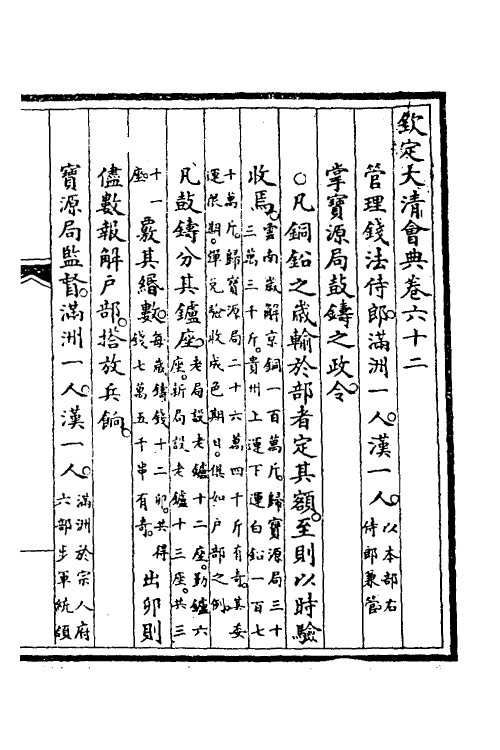 欽定大清會典卷六十二
管理錢法侍郎滿洲一人。漢一人。以本部右侍郎兼管
掌寶源局鼓鑄之政令。
○凡銅鉛之歲輸於部者定其額。至則以時驗
收焉。雲南歲解京銅一百萬斤。歸寶源局三十三萬三千斤。貴州上運下運白鉛一百七
十萬斤。歸寶源局二十六萬四千斤有奇。其委運展期。彈兌驗收成色期日。俱如戶部之例。
凡鼓鑄分其鑪座。老局設老鑪十二座。勤鑪六座。新局設老鑪十三座。共三
十一座。覈其緡數。每歲鑄錢十二卯。共得錢七萬五千串有奇。出卯則
儘數報解戶部。搭放兵餉。
寶源局監督。滿洲一人。漢一人。滿洲於宗人府六部步軍統領